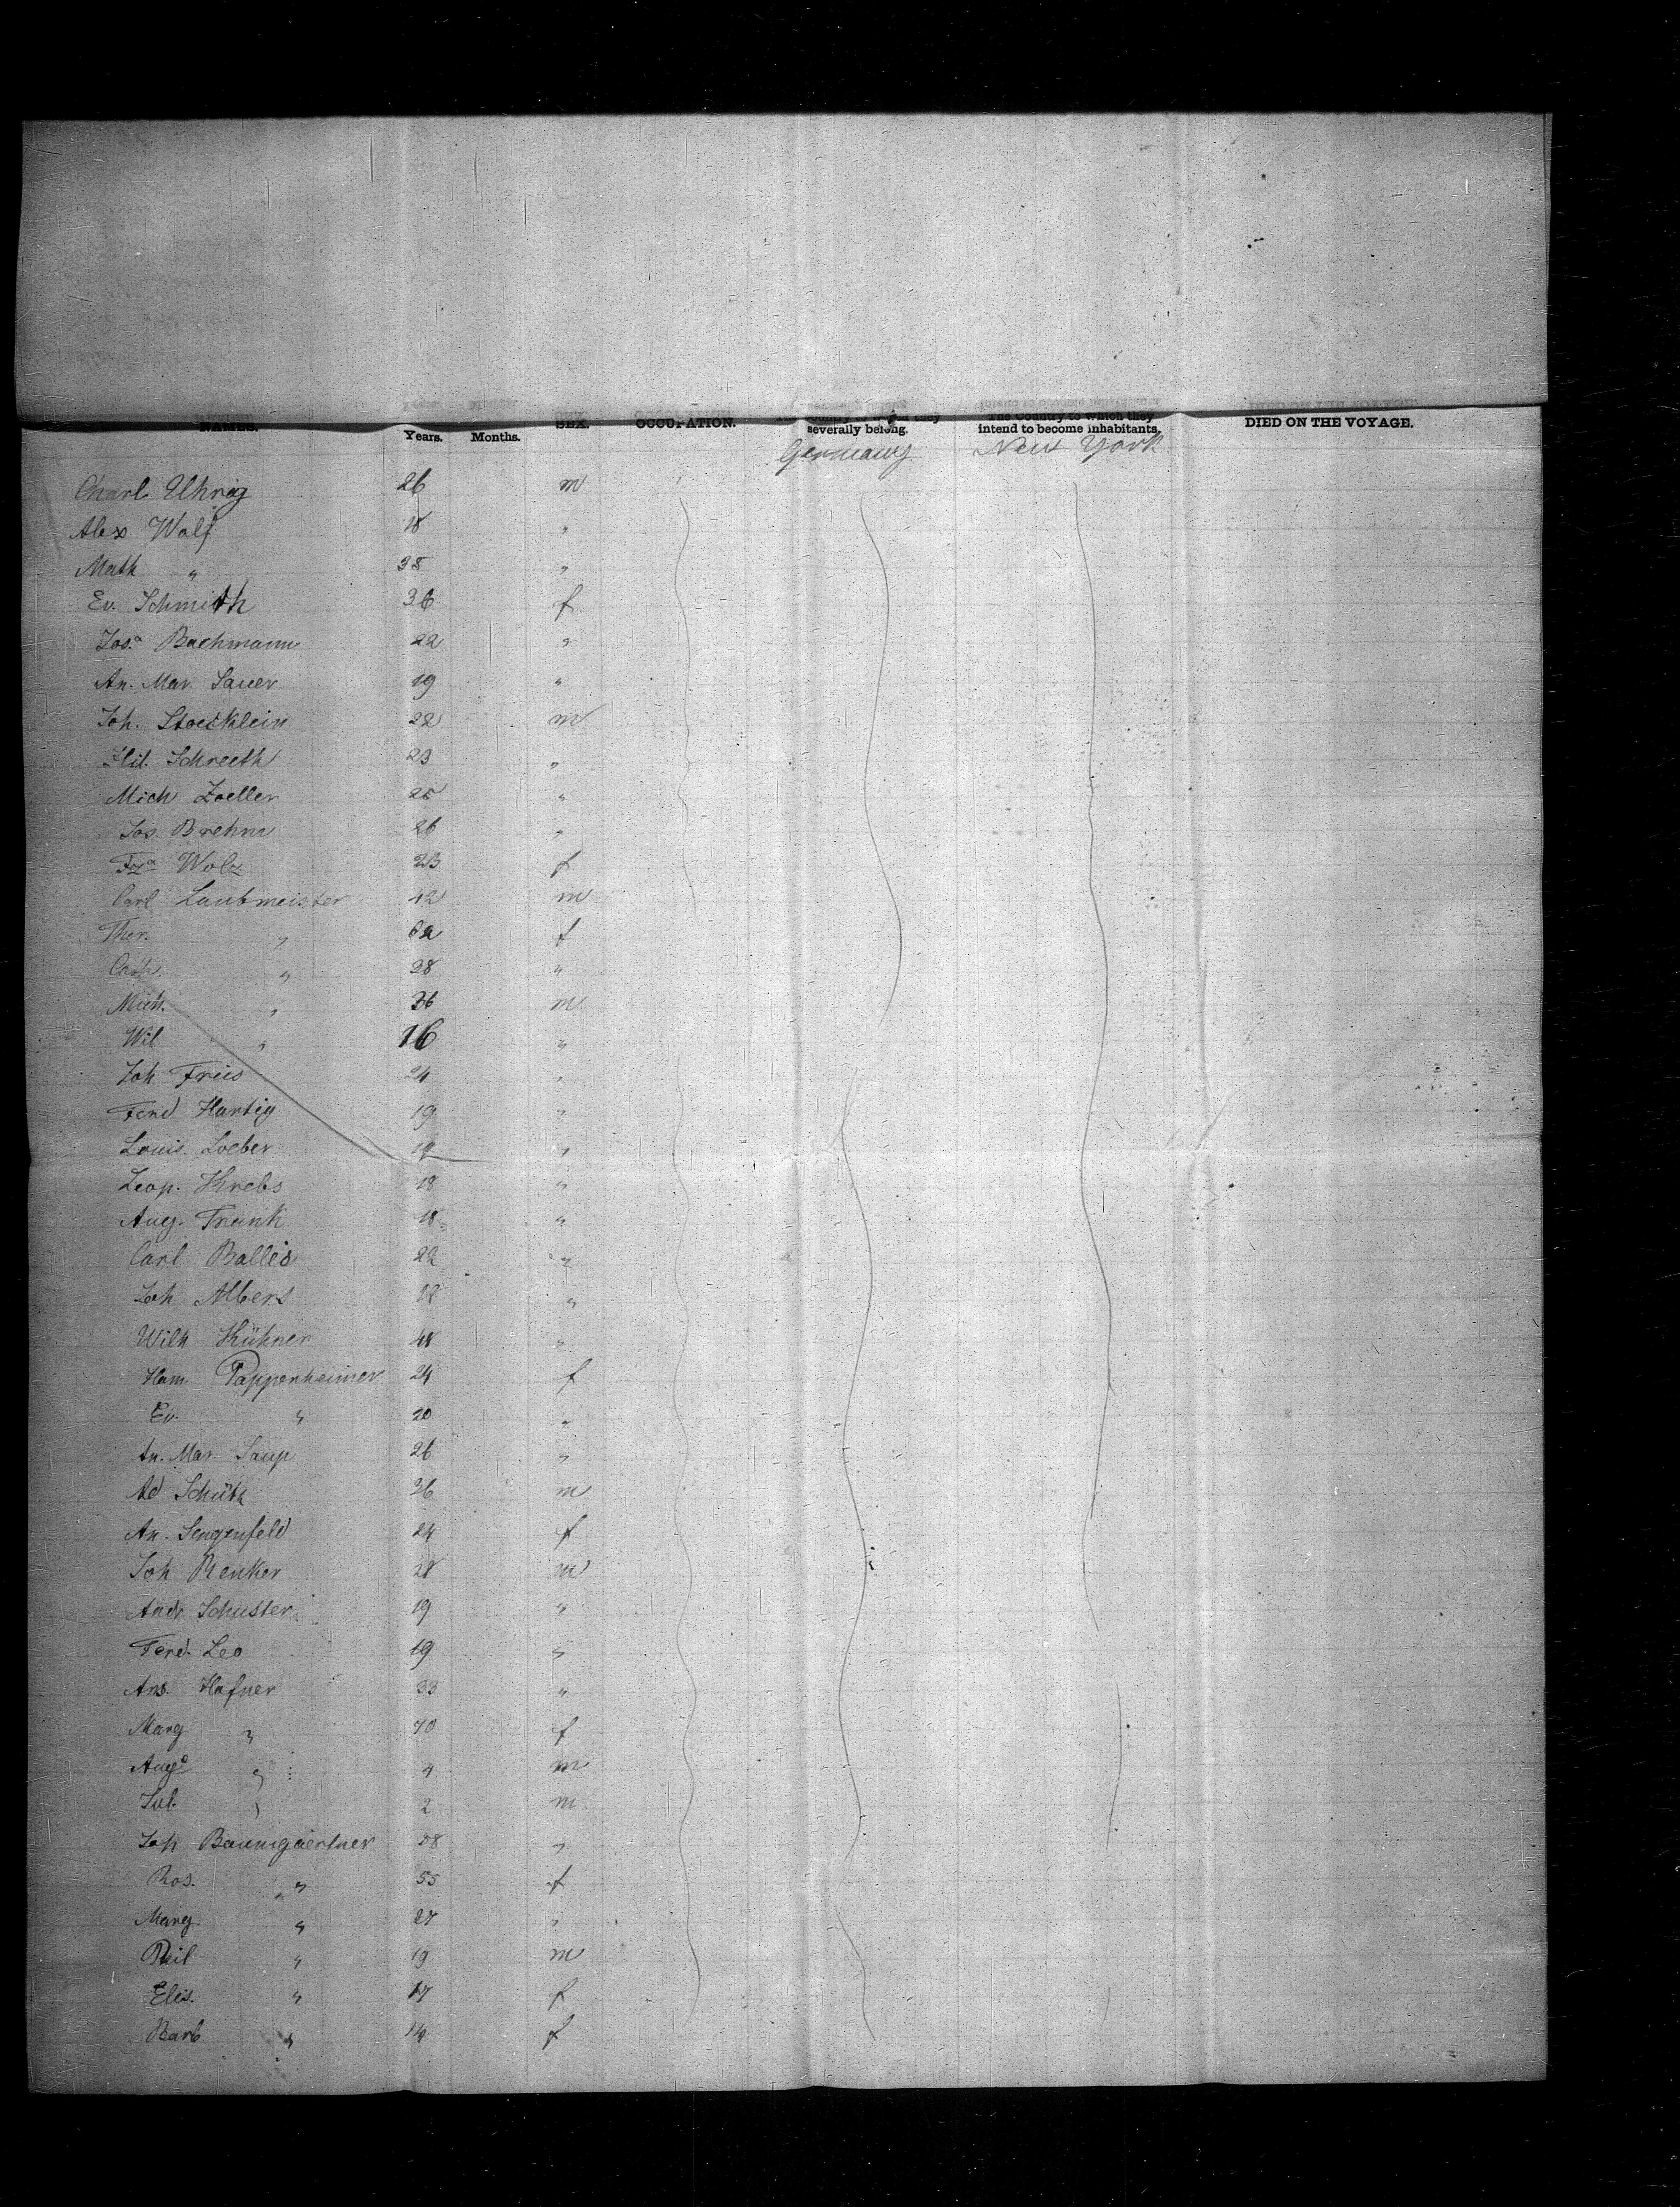 NAMES. Years. Months. SEX. OCCUPATION. severally belong. The Country to which they intend to become inhabitants. DIED ON THE VOYAGE.
Germany New York
Charl. Uhrig 26 m
Alex Wolf 18 "
Math " 38 "
Ev. Schmith 36 f
Jos.a Bachmann 22 "
An. Mar. Sauer 19 "
Joh. Stoecklein 28 m
Hil. Schreeth 23 "
Mich Zoeller 25 "
Jos. Brehm 26 "
Fza Wolz 23 f
Carl Laubmeister 42 m
Ther. " f
Cath. " 38 "
Mich. " 36 m
Wil " 16 "
Joh Fries 24 "
Ferd Hartig 19 "
Louis Loeber 19 "
Leop. Krebs 18 "
Aug. Frank 18 "
Carl Balles 22 "
Joh Albers "
Wilh Kühner 48 "
Ham. Pappenheimer 24 f
Ev. " 20 "
An. Mar. Saup 26 "
Ad Schütz 36 m
An. Sengenfeld 24 f
Joh Renker 28 m
Andr Schuster 19 "
Ferd. Leo 19 "
Ans. Hafner 33 "
Marg " f
Auge " 4 m
Jul. " 2 m
Joh Baumgaertner 58 "
Ros. " 55 f
Marg. " 27 "
Phil " 19 m
Elis. " 17 f
Barb " 14 f